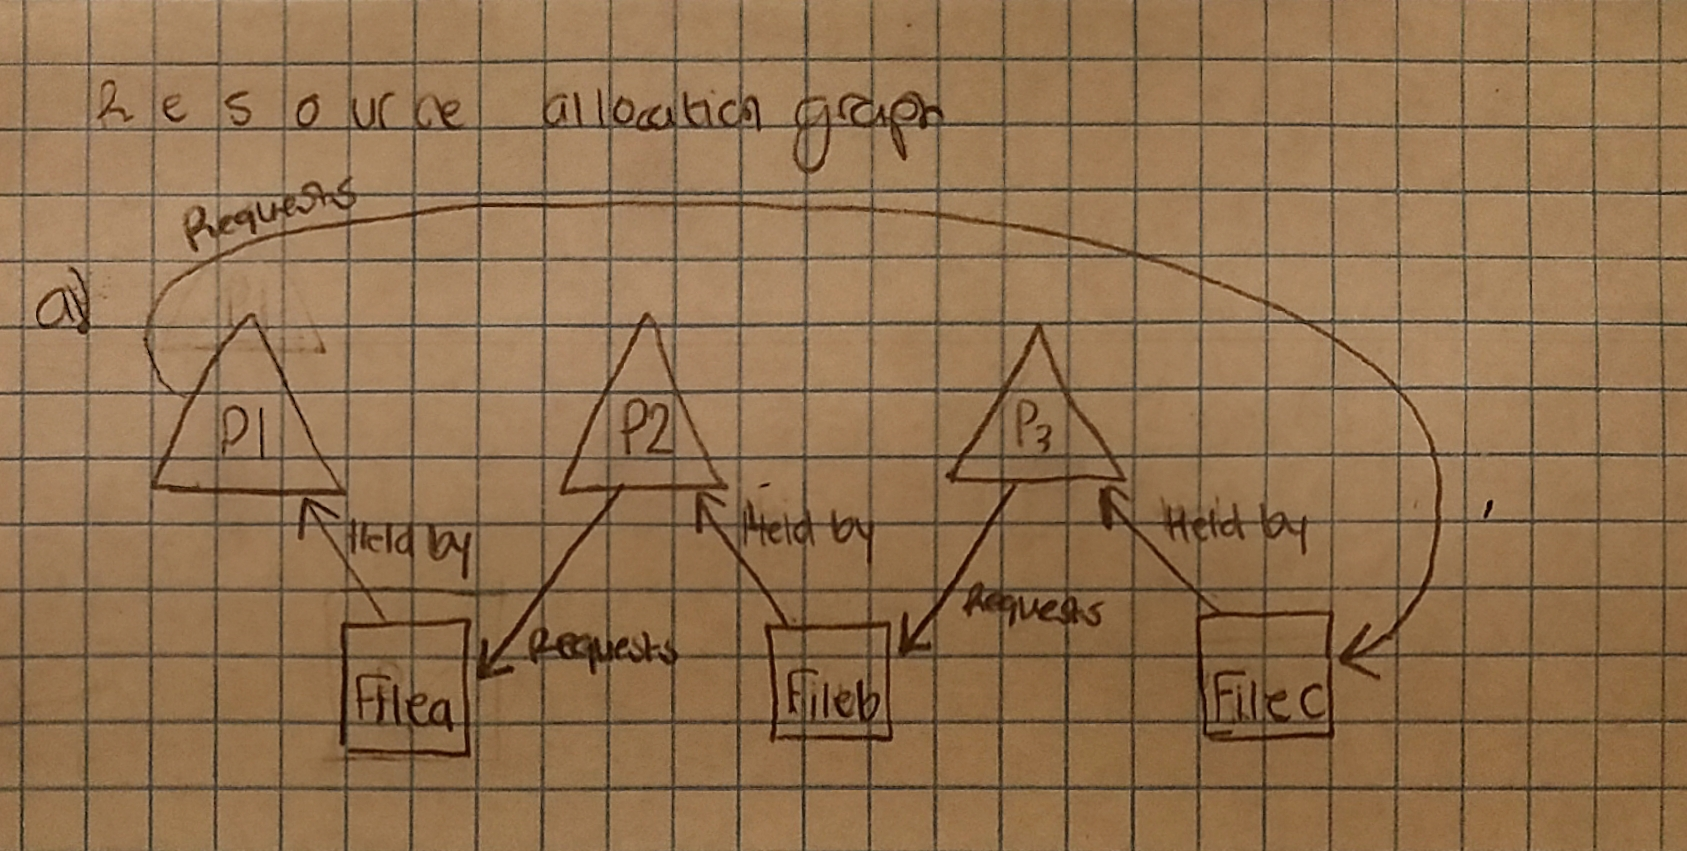 Resource allocation graph
Requests
a)
P1 P2 P3
Held by Held by Held by
Requests Requests
Filea Fileb Filec